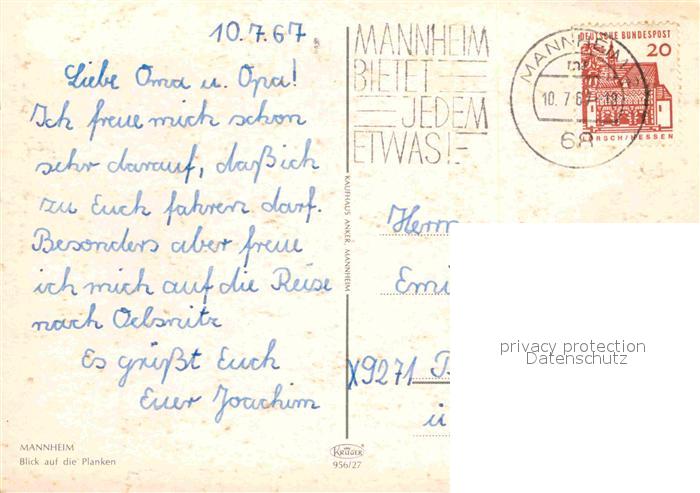 10.7.67
Liebe Oma u. Opa!
Ich freue mich schon
sehr darauf, daß ich
zu Euch fahren darf.
Besonders aber freue
ich mich auf die Reise
nach Oelsnitz
Es grüßt Euch
Euer Joachim
MANNHEIM
Blick auf die Planken
KAUFHAUS ANKER, MANNHEIM
KRÜGER
956/27
MANNHEIM
BIETET
JEDEM
ETWAS!
MANNHEIM
10.7.67
68
DEUTSCHE BUNDESPOST
20
ORSCH/HESSEN
Herrn
Emi
X9271
ü
privacy protection
Datenschutz